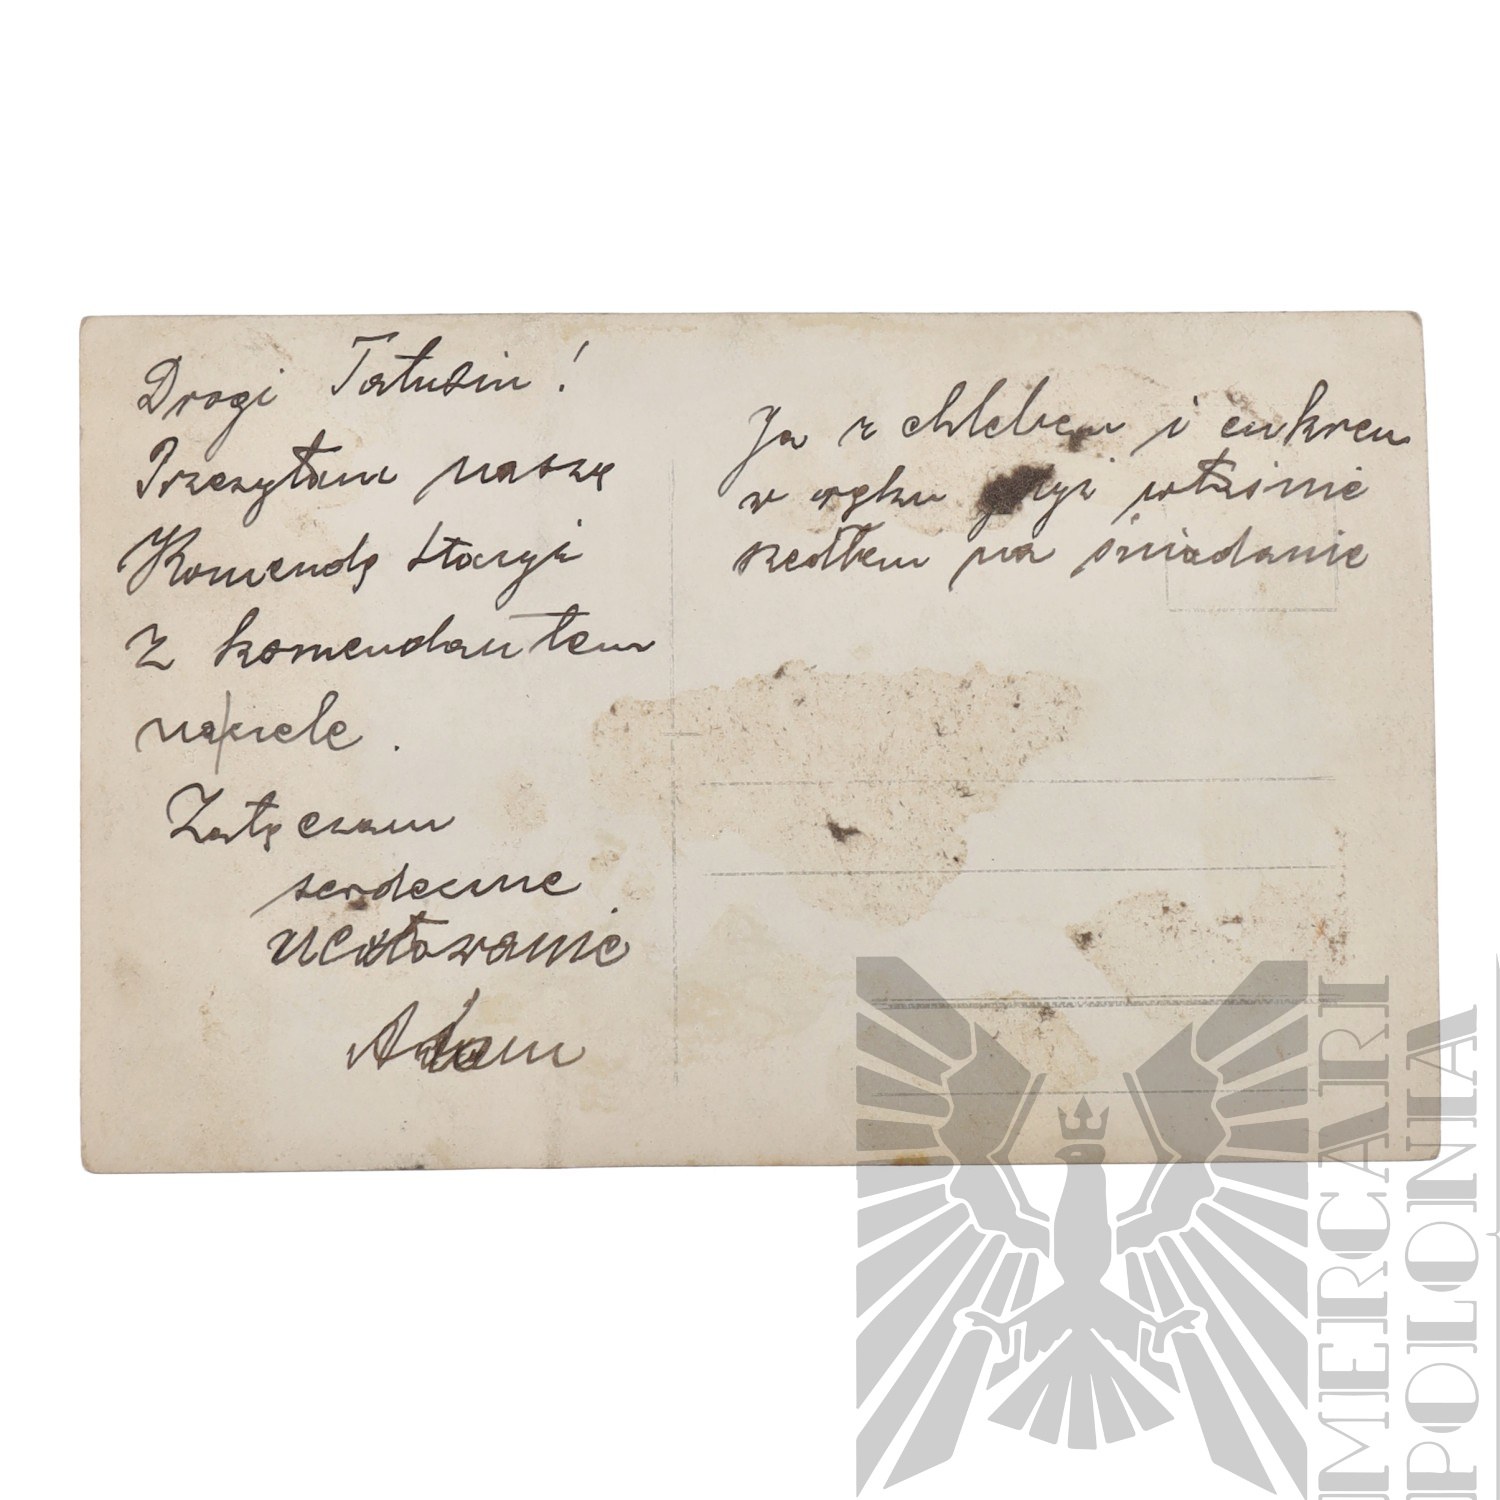 Drogi Tatusiu!
Przesyłam naszę
Komendę Staryi
z komendantem
na czele.
Załączam
serdeczne
ucałowanie
Adam
Ja z chlebem i cukrem
w ręku gdyż właśnie
szedłem na śniadanie
MERCARI
POLONIA